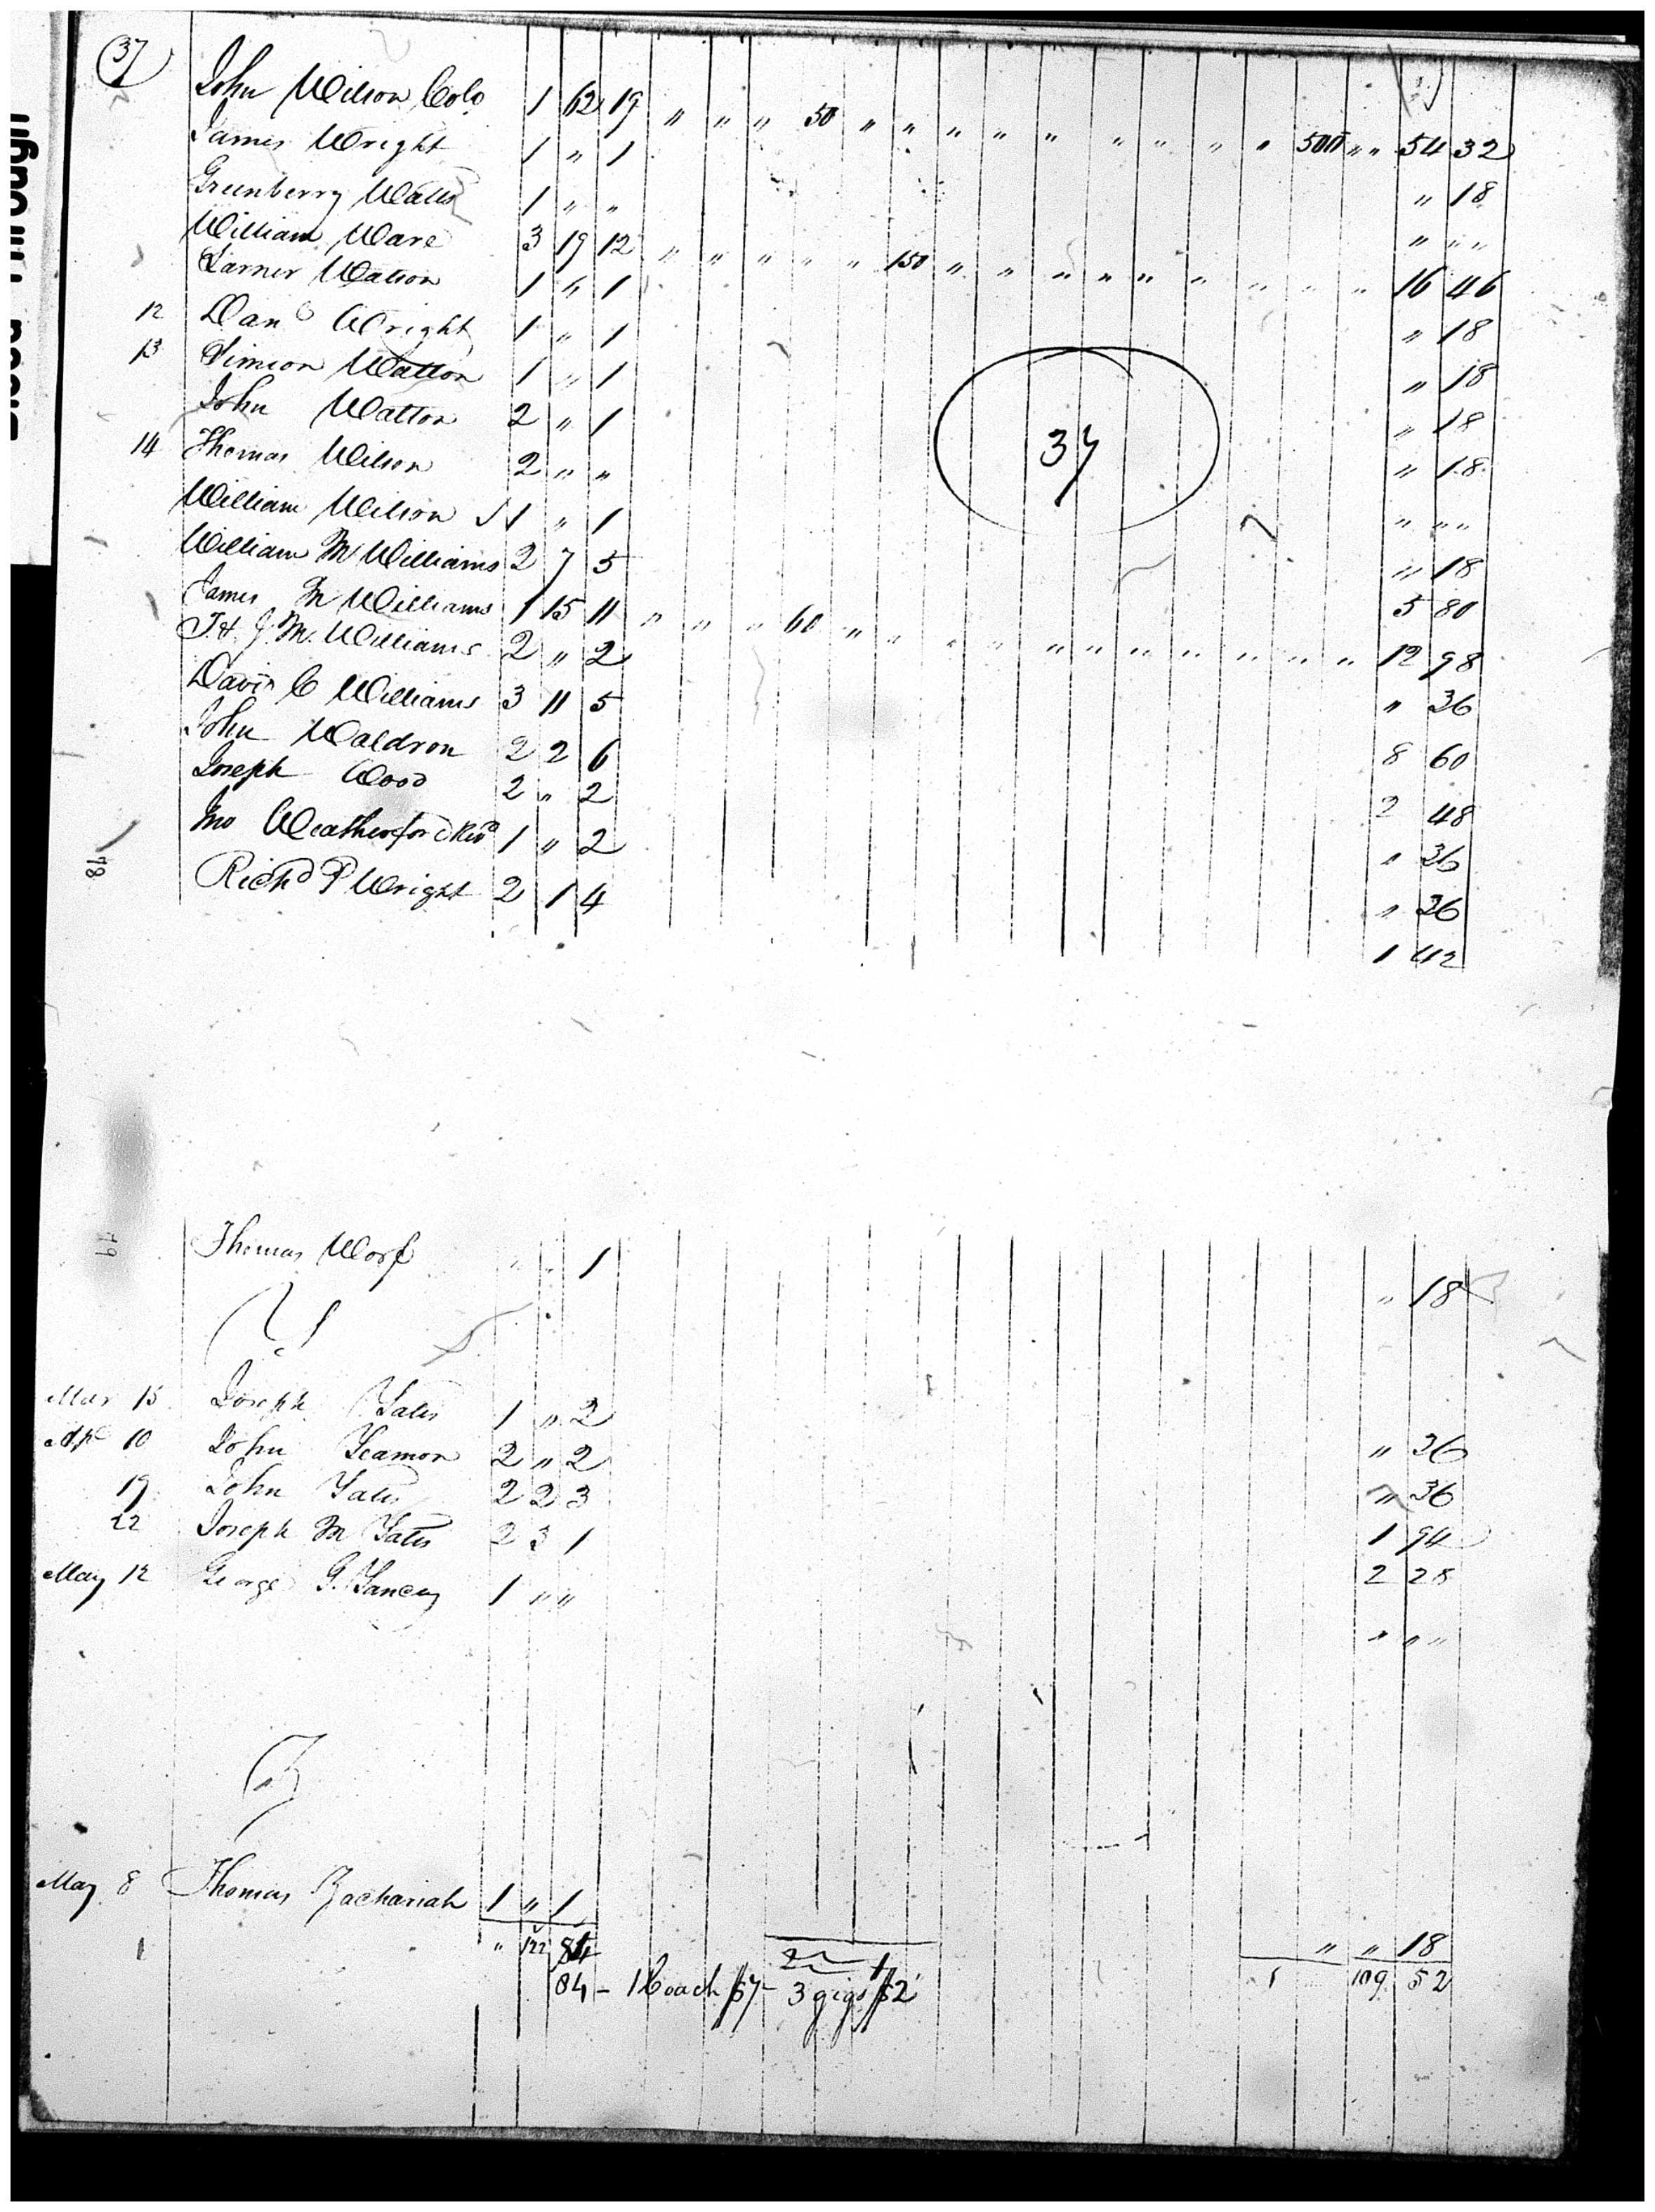 37
John Wilson Colo 1 62 19 " " " 50 " " " " " " " " " 500 " " 54 32
James Wright 1 " 1 " 18
Greenberry Watts 1 " " " " "
William Ware 3 19 12 " " " " " 150 " " " " " " " " " 16 46
Larner Watson 1 " 1 " 18
12 Danl Wright 1 " 1 " 18
13 Simeon Walton 1 " 1 " 18
John Watton 2 " 1 " 18
37
14 Thomas Wilson 2 " " " " "
William Wilson 1 " 1 " 18
William M Williams 2 7 5 5 80
James M Williams 1 15 11 " " " 60 " " " " " " " " " " " 12 98
J. M. Williams 2 " 2 " 36
David C Williams 3 11 5 8 60
John Waldron 2 2 6 2 48
Joseph Wood 2 " 2 " 36
Jno Weatherford Revd 1 " 2 " 36
78
Richd P Wright 2 1 4 1 42
79
Thomas " " 1 " 18
Y
Mar 15 Joseph Yates 1 " 2 " 36
Apl 10 John Yeamon 2 " 2 " 36
19 John Yates 2 2 3 1 94
22 Joseph M Yates 2 3 1 2 28
May 12 George G. Yancey 1 " " " " "
Z
May 8 Thomas Zachariah 1 " 1 " " 18
1 " 122 84 2 1 1 109 52
84 - 1 Coach $57 - 3 gigs $2